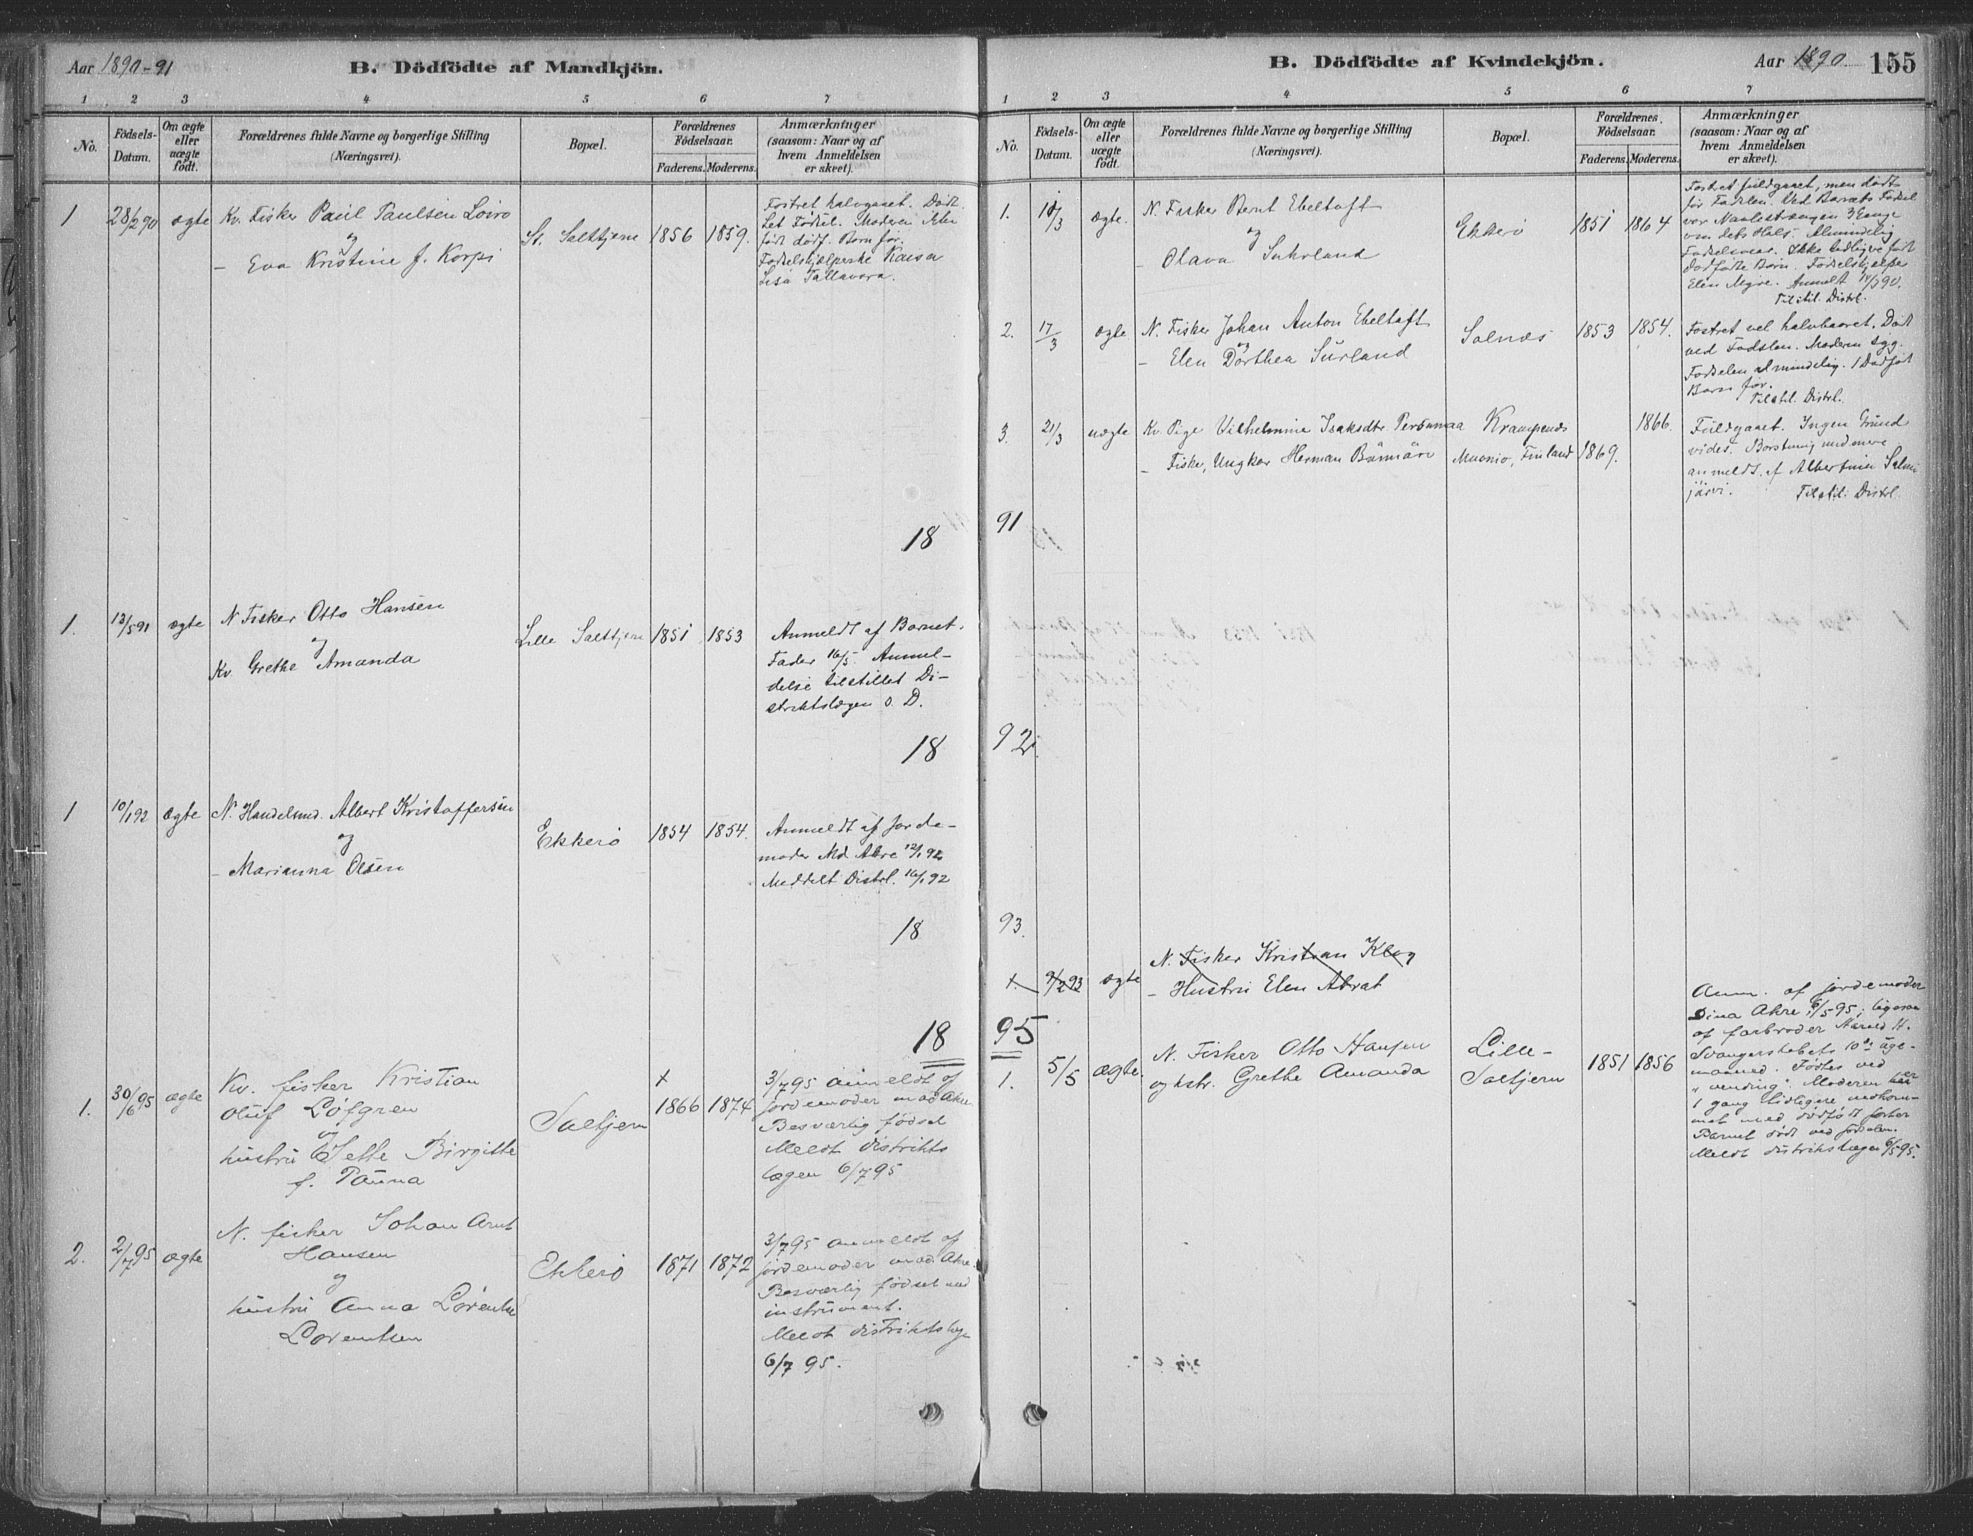 Aar 1890-91
B. Dödfödte af Mandkjön.
1 2 3 4 5 6 7
No.
Födsels-
Datum.
Om ægte
eller
uægte
födt.
Forældrenes fulde Navne og borgerlige Stilling
(Næringsvei).
Bopæl.
Forældrenes
Födselsaar.
Faderens. Moderens.
Anmærkninger
(saasom: Naar og af
hvem Anmeldelsen
er skeet).
1 28/2 90 ægte Kv. Fisker Paul Paulsen Loiro
og
– Eva Kristine f. Korpi
St. Saltjern 1856 1859.
Fostret halvgaaet. Död.
Let Födsel. Moderen ikke
født dødf. Børn før.
Fødselshjælperske Kaisa
Lisa Tallavara.
18
1. 13/5 91 ægte N Fisker Otto Hansen
og
Kv Grethe Amanda
Lille Saltjern 1851 1853
Anmeldt af Barnets
Fader 16/5. Anmel-
delse tilstillet Di-
striktslægen s. D.
18
1 10/1 92 ægte N. Handelsmd. Albert Kristoffersen
og
– Marianna Olsen
Ekkerö 1854 1854.
Anmeldt af Jorde-
moder Md Akre 12/1 92
Meddelt Distrl. 16/1 92
18
18
1. 30/6 95 ægte Kv. fisker Kristian
Oluf Löfgren
og
hustru Jette Birgitte
f. Pauna
Saltjern
x
1866 1874
3/7 95 anmeldt af
jordemoder mad. Akre
Besværlig födsel
Meldt distrikts
lægen 6/7 95
2. 2/7 95 ægte N. fisker Johan Arnt
Hansen
og
hustru Anna Lorentse
Lorentsen
Ekkerö 1871 1872
3/7 95 anmeldt af
jordemoder mad. Akre.
Besværlig födsel med
instrument.
Meldt distriktslæge
6/7 95.
B. Dödfödte af Kvindekjön.
Aar 1890. 155
1 2 3 4 5 6 7
No.
Födsels-
Datum.
Om ægte
eller
uægte
födt.
Forældrenes fulde Navne og borgerlige Stilling
(Næringsvei).
Bopæl.
Forældrenes
Födselsaar.
Faderens. Moderens.
Anmærkninger
(saasom: Naar og af
hvem Anmeldelsen
er skeet).
1. 10/3 ægte. N. Fisker Bernt Ebeltoft
og
– Olava Suhrland
Ekkerö 1851 1864
Fostret fuldgaaet, men dødt
før Fødslen. Ved Barnets Fødsel
var Navlestrengen 3 Gange
om dets Hals. Almindelig
Fødselsveer. Ikke tidligere født
dødfødte Børn. Fødselshjælper
Elen Negre. Anmeldt
Tilstil. Distrl.
2. 17/3 ægte N. Fisker Johan Anton Ebeltoft
og
– Elen Dorthea Surland
Salnæs 1853 1854.
Fostret vel halvbaaret. Dødt
ved Fødslen. Moderen syg.
Fødselen almindelig. 1 Dødfødt
Barn før.
Tilstil. Distrl.
3. 21/3 uægte Kv. Pige Vilhelmine Isaksdtr. Krampenæs 1866.
– Fisker, Ungkar Herman Muonio, Finland 1869.
Fuldgaaet. Ingen Grund
vides.
anmeldt af Albertine Salmi
järvi. Tilstil. Distrl.
91
92
93.
1. 9/2 93 ægte N. Fisker Kristian Klog
– Hustru Elen Abrat
95
1. 5/5 ægte. N. Fisker Otto Hansen
og hstr. Grethe Amanda
Lille-
Saltjern 1851 1856
Anm. af jordemoder
Dina Akre 6/5 95; ligesaa
af farbroder Harald H.
Svangerskabets 10de
maaned. Födtes ved
"vending". Moderen har
1 gang tidligere nedkom-
met med dödfödt foster
Barnet dödt ved födselen.
Meldt distriktslægen 6/5 95.